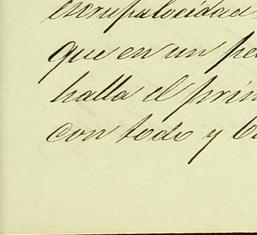 escrupulocidad
que en un pe
halla el prin
con todo y